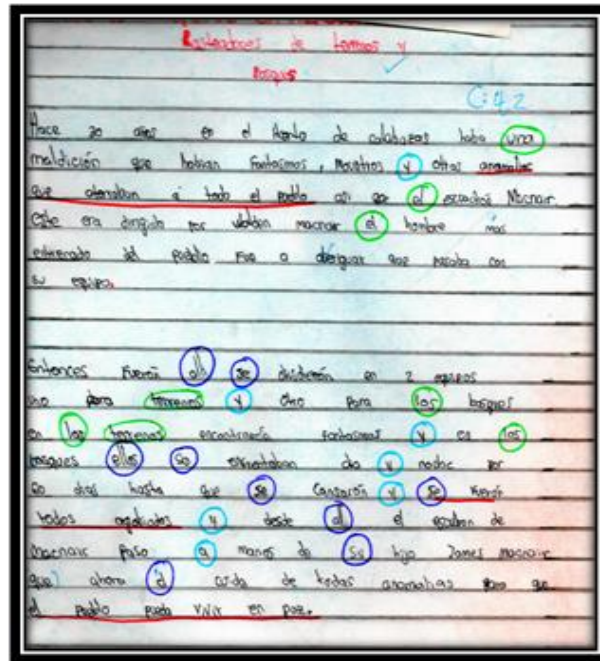 Rastreadores de terrenos y
Bosques
C: 4.2
Hace 30 años en el de calabazas había una
maldición que habían fantasmas, monstros y otras anomalias
que aterraban a todo el pueblo asi que el escuadron Macnair
este era dirigido por macnair el hombre mas
entrenado del pueblo fue a que pasaba con
su equipo.
Entonces fuerón allí se dividierón en 2 equipos
uno para terrenos y otro para los bosques
en los terrenos fantasmas y en los
bosques ellos se enfrentaban dia y noche por
50 dias hasta que se cansarón y se fuerón
todos agotados y desde allí el de
macnair paso a manos de su hijo James macnair
que ahora él cuida de todas anomalias para que
el pueblo pueda vivir en paz.